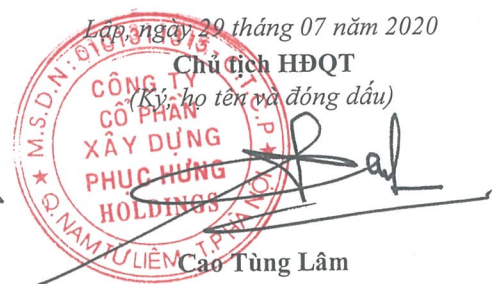 Lập, ngày 29 tháng 07 năm 2020
Chủ tịch HĐQT
(Ký, họ tên và đóng dấu)
CÔNG TY
CỔ PHẦN
XÂY DỰNG
PHỤC HƯNG
HOLDINGS
M.S.D.N:
Q. NAM TỪ LIÊM - T.P HÀ NỘI
Cao Tùng Lâm